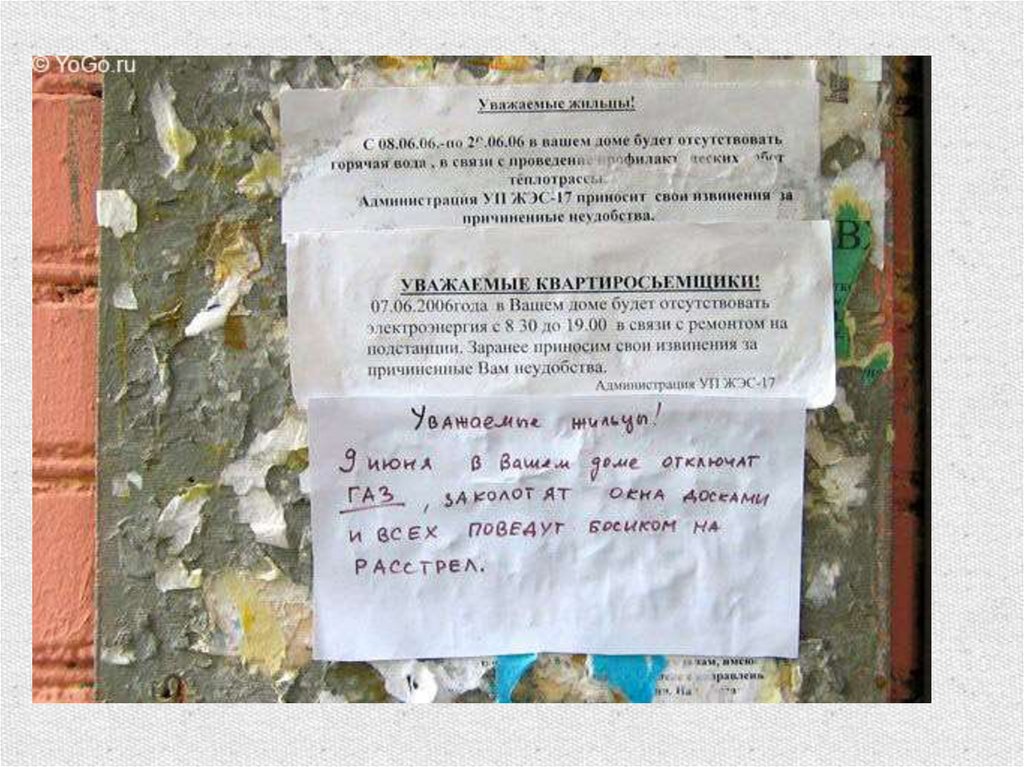 © YoGo.ru
Уважаемые жильцы!
С 08.06.06.-по 2 .06.06 в вашем доме будет отсутствовать
горячая вода , в связи с
теплотрассы.
Администрация УП ЖЭС-17 приносит свои извинения за
причиненные неудобства.
В
УВАЖАЕМЫЕ КВАРТИРОСЬЕМЩИКИ!
07.06.2006года в Вашем доме будет отсутствовать
электроэнергия с 8 30 до 19.00 в связи с ремонтом на
подстанции. Заранее приносим свои извинения за
причиненные Вам неудобства.
Администрация УП ЖЭС-17
Уважаемые жильцы!
9 июня в Вашем доме отключат
ГАЗ , заколотят окна досками
и всех поведут босиком на
расстрел.